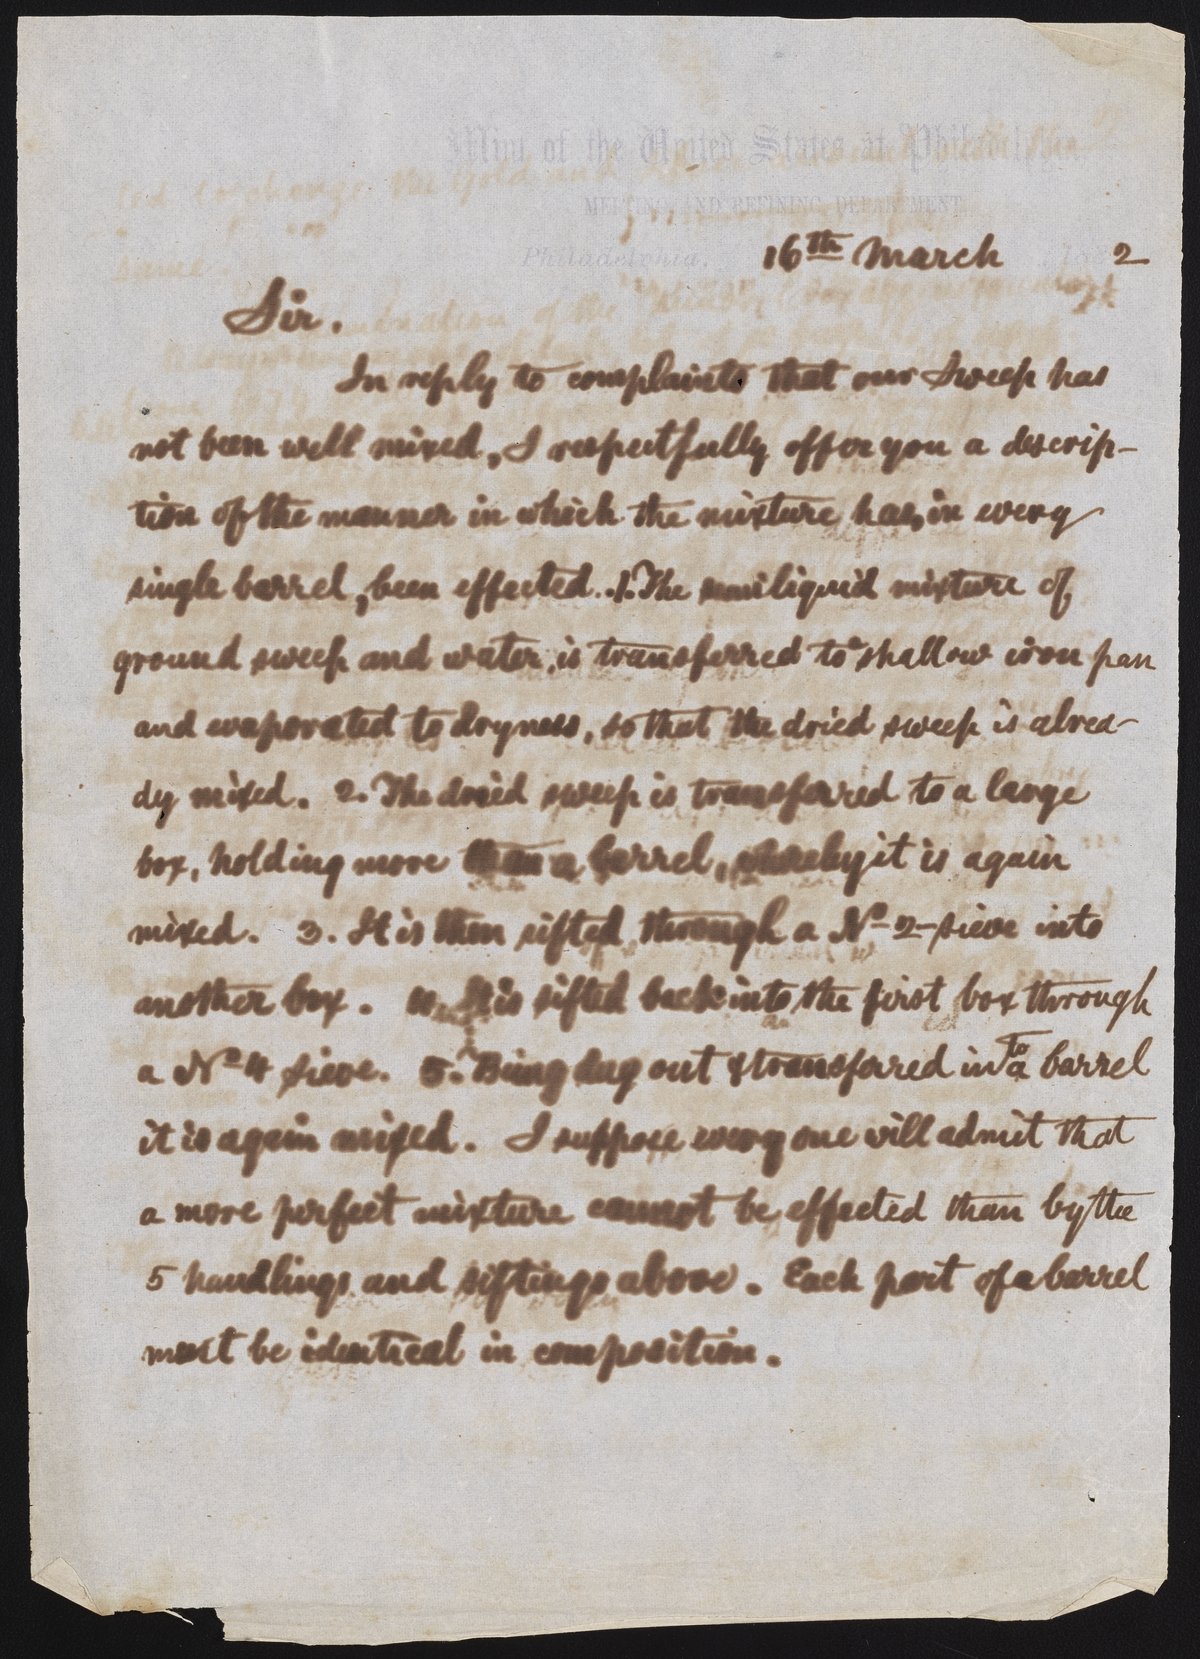 Mint of the United States at Philadelphia,
MELTING AND REFINING DEPARTMENT,
Philadelphia, 16th March 1882
Sir.
In reply to complaints that our Sweep has
not been well mixed, I respectfully offer you a descrip-
tion of the manner in which the mixture has, in every
single barrel, been effected. 1. The semiliquid mixture of
ground sweep and water, is transferred to a shallow iron pan
and evaporated to dryness, so that the dried sweep is alrea-
dy mixed. 2. The dried sweep is transferred to a large
box, holding more than a barrel, whereby it is again
mixed. 3. It is then sifted through a No 2 sieve into
another box. 4. It is sifted back into the first box through
a No 4 sieve. 5. Being dug out & transferred into a barrel
it is again mixed. I suppose every one will admit that
a more perfect mixture cannot be effected than by the
5 handlings and siftings above. Each part of a barrel
must be identical in composition.